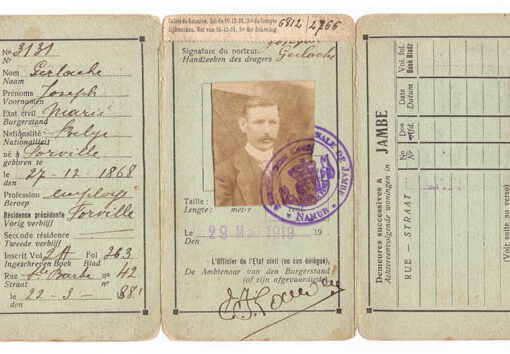 No 3131
Nom Gerlache
Naam
Prénoms Joseph
Voornamen
Etat civil Marié
Burgerstand
Nationalité Belge
Nationaliteit
né à Sorville
geboren te
le 27-12-1868
den
Profession employé
Beroep
Résidence précédente Sorville
Vorig verblijf
Seconde résidence
Tweede verblijf
Inscrit Vol 2A Fol 263
Ingeschreven Boek Blad
Rue Ste Barbe no 42
Straat nr
le 22-3-881
den
6812 / 2766
Signature du porteur
Handteeken des dragers Gerlache
DE JAMBE
NAMUR
Taille :
Lengte : met-r
Le 29 Mai 1919 19
Den
L'Officier de l'Etat civil (ou son délégué),
De Ambtenaar van den Burgerstand
(of zijn afgevaardigde)
Demeures successives à JAMBE
Achtereenvolgende woningen in
RUE — STRAAT
No
Nr
Date
Datum
Vol. fol.
Boek Bladz
(Voir suite au verso)